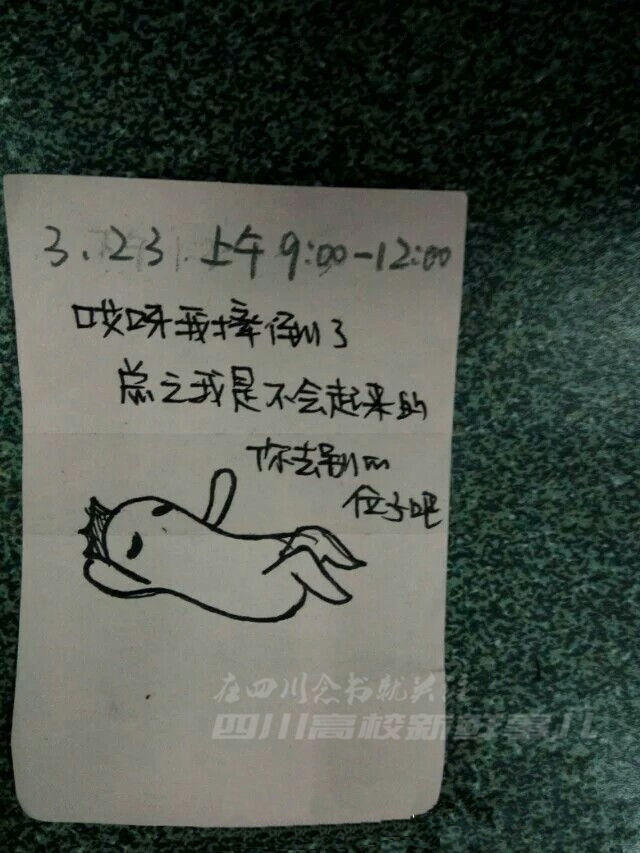 3.23 上午 9:00-12:00
哎呀我摔倒了
总之我是不会起来的
你去别的
位子吧
在四川念书就关注
四川高校新鲜事儿